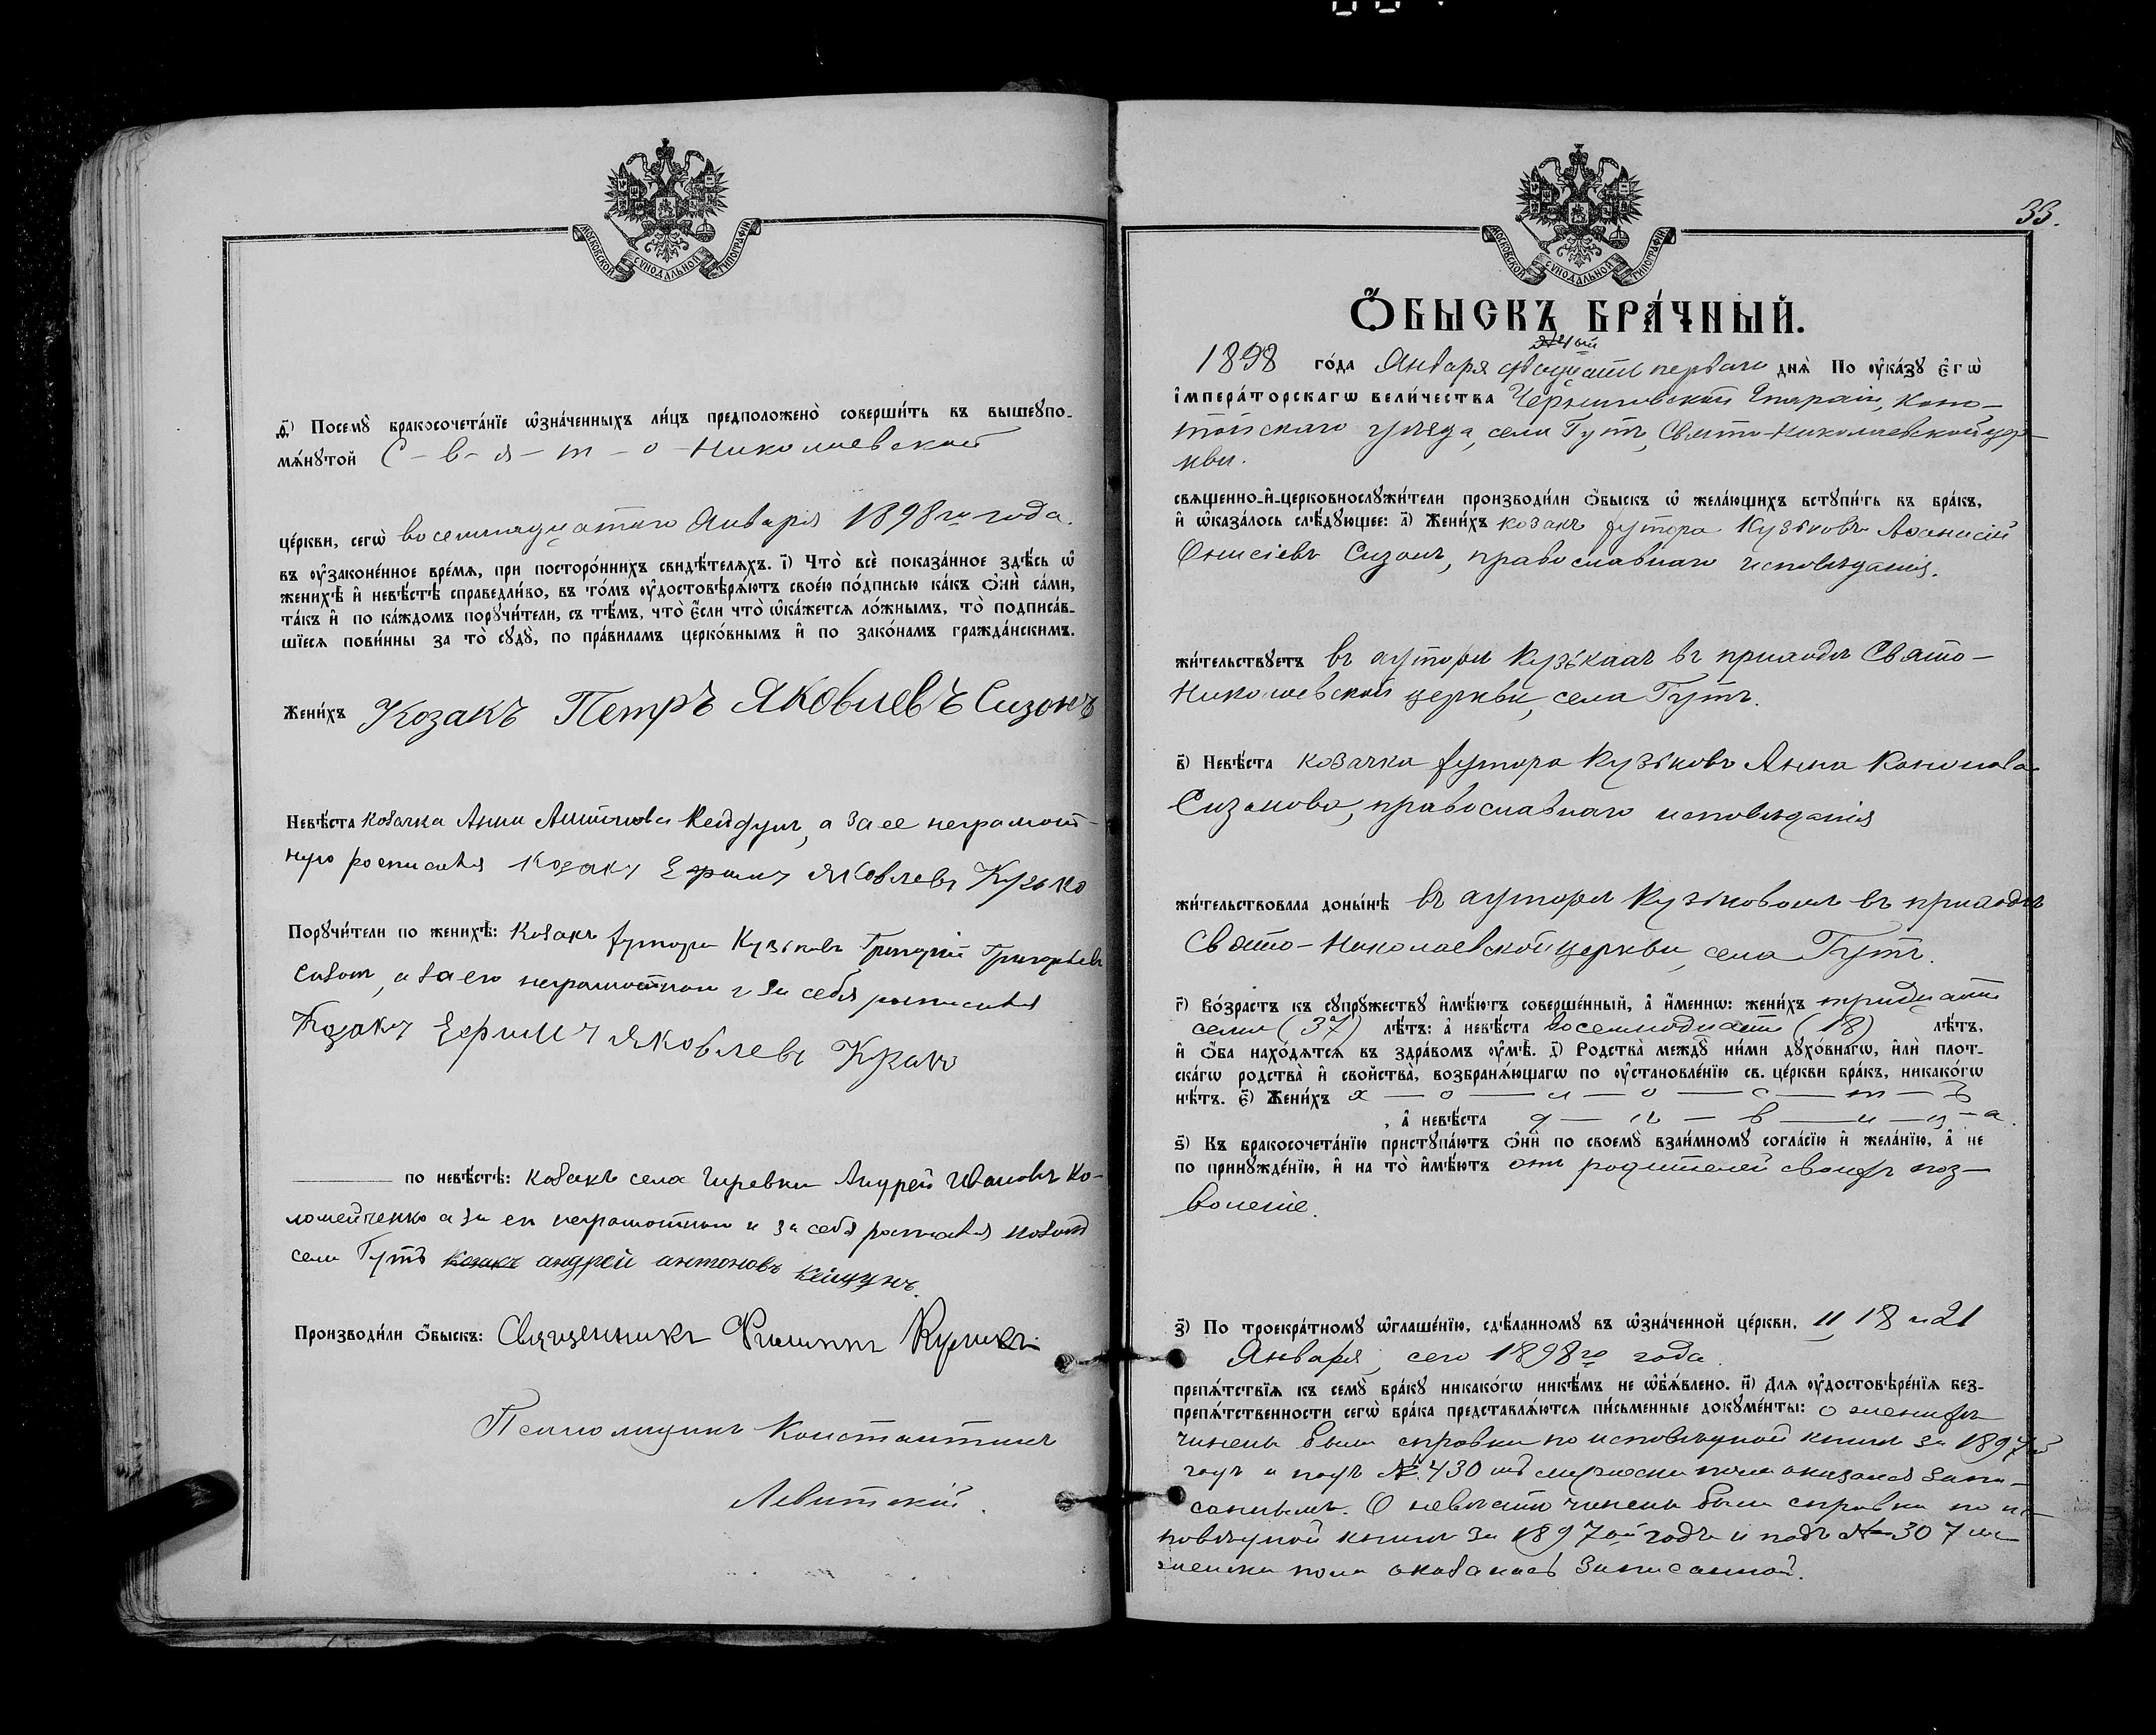 МОСКОВСКОЙ СУНОДАЛЬНОЙ ТИПОГРАФІИ
д҃) Посемꙋ̀ бракосочета́нїе ѡ҆зна́ченныхъ ли́цъ предположено̀ соверши́ть въ вышеꙋпо-
мѧ́нꙋтой С-в-я-т-о-Николаевской
це́ркви, сегѡ̀ восемнадцатаго Января 1898го года.
въ ᲂу҆законе́нное вре́мѧ, при посторо́ннихъ свидѣ́телѧхъ. і҃) Что̀ всѐ показа́нное здѣ́сь ѡ҆
женихѣ̀ и҆ невѣ́стѣ справедли́во, въ то́мъ ᲂу҆достовѣрѧ́ютъ свое́ю по́дписью ка́къ ѻ҆нѝ са́ми,
та́къ и҆ по ка́ждомъ порꙋчи́тели, съ тѣ́мъ, что̀ є҆́сли что̀ ѡ҆ка́жетсѧ ло́жнымъ, то̀ подписа́в-
шїесѧ пови́нны за то̀ сꙋдꙋ̀, по пра́виламъ церко́внымъ и҆ по зако́намъ гражда́нскимъ.
Жени́хъ Козакъ Петръ Яковлевъ Сизонъ
Невѣ́ста козачка Анна Антонова Кейдунъ, а за ее неграмот-
ную росписался Козакъ Ефимъ Яковлевъ Кузько
Порꙋчи́тели по женихѣ̀: Козакъ хутора Кузьковъ Григорій Григорьевъ
Сизонъ, а за его неграмотнаго и за себя росписался
Козакъ Ефимъ Яковлевъ
по невѣ́стѣ: козакъ села Гиревки Андрей Ивановъ Ко-
ломейченко а за его неграмотнаго и за себя росписался козакъ
села Гутъ козакъ андрей антоновъ
Производи́ли ѻ҆́быскъ: Священникъ Филиппъ Куликъ
Псаломщикъ Константинъ
Левитскій.
МОСКОВСКОЙ СУНОДАЛЬНОЙ ТИПОГРАФІИ
33.
Ѻ҆́БЫСКЪ БРА́ЧНЫЙ.
1898 го́да Января двадцать перваго днѧ̀ По ᲂу҆ка́зꙋ є҆гѡ̀
і҆мпера́торскагѡ вели́чества Черниговской Епархіи, Коно-
топскаго уѣзда, села Гутъ, Свято-Николаевской цер-
кви.
свѧщенно-и҆-церковнослꙋжи́тели производи́ли ѻ҆́быскъ ѡ҆ жела́ющихъ встꙋпи́ть въ бра́къ,
и҆ ѡ҆каза́лось слѣ́дꙋющее: а҃) Жени́хъ козакъ хутора Кузьковъ Аѳанасій
Онисіевъ Сизонъ, православнаго исповѣданія.
жи́тельствꙋетъ въ хуторѣ Кузькахъ въ приходѣ Свято-
Николаевской церкви, села Гутъ.
в҃) Невѣ́ста козачка хутора Кузьковъ Анна Кононова
Сизонова, православнаго исповѣданія
жи́тельствовала доны́нѣ въ хуторѣ Кузьковомъ въ приходѣ
Свято-Николаевской церкви, села Гутъ.
г҃) Во́зрастъ къ сꙋпрꙋ́жествꙋ и҆мѣ́ютъ соверше́нный, а҆ и҆́менно: жени́хъ тридцати
семи (37) лѣ́тъ: а҆ невѣ́ста восемнадцати (18) лѣ́тъ,
и҆ ѻ҆́ба нахо́дѧтсѧ въ здра́вомъ ᲂу҆мѣ̀. д҃) Родства̀ междꙋ̀ ни́ми дꙋхо́внагѡ, и҆лѝ плот-
ска́гѡ родства̀ и҆ сво́йства, возбранѧ́ющагѡ по ᲂу҆становле́нїю св. це́ркви бра́къ, никако́гѡ
нѣ́тъ. є҃) Жени́хъ х — о — л — о — с — т — ъ
, а҆ невѣ́ста д — ѣ — в — и — ц — а.
ѕ҃) Къ бракосочета́нїю пристꙋпа́ютъ ѻ҆нѝ по своемꙋ̀ взаи́мномꙋ согла́сїю и҆ жела́нїю, а҆ не
по принꙋжде́нїю, и҆ на то̀ и҆мѣ́ютъ отъ родителей своихъ поз-
воленіе.
з҃) По троекра́тномꙋ ѡ҆глаше́нїю, сдѣ́ланномꙋ въ ѡ҆зна́ченной це́ркви, 11, 18 и 21
Января, сего 1898го года.
препѧ́тствїѧ къ семꙋ̀ бра́кꙋ никако́гѡ никѣ́мъ не ѡ҆б̾ѧ́влено. и҃) Длѧ ᲂу҆достовѣре́нїѧ без-
препѧ́тственности сегѡ̀ бра́ка представлѧ́ютсѧ пи́сьменные докꙋме́нты: о женихѣ
чинены были справки по исповѣдной книгѣ за 1897й
годъ и подъ № 430 мъ мужеска пола оказался запи-
саннымъ. О невѣстѣ чинены были справки по ис-
повѣдной книгѣ за 1897ой годъ и подъ № 307 мъ
женска пола оказалась записанной.